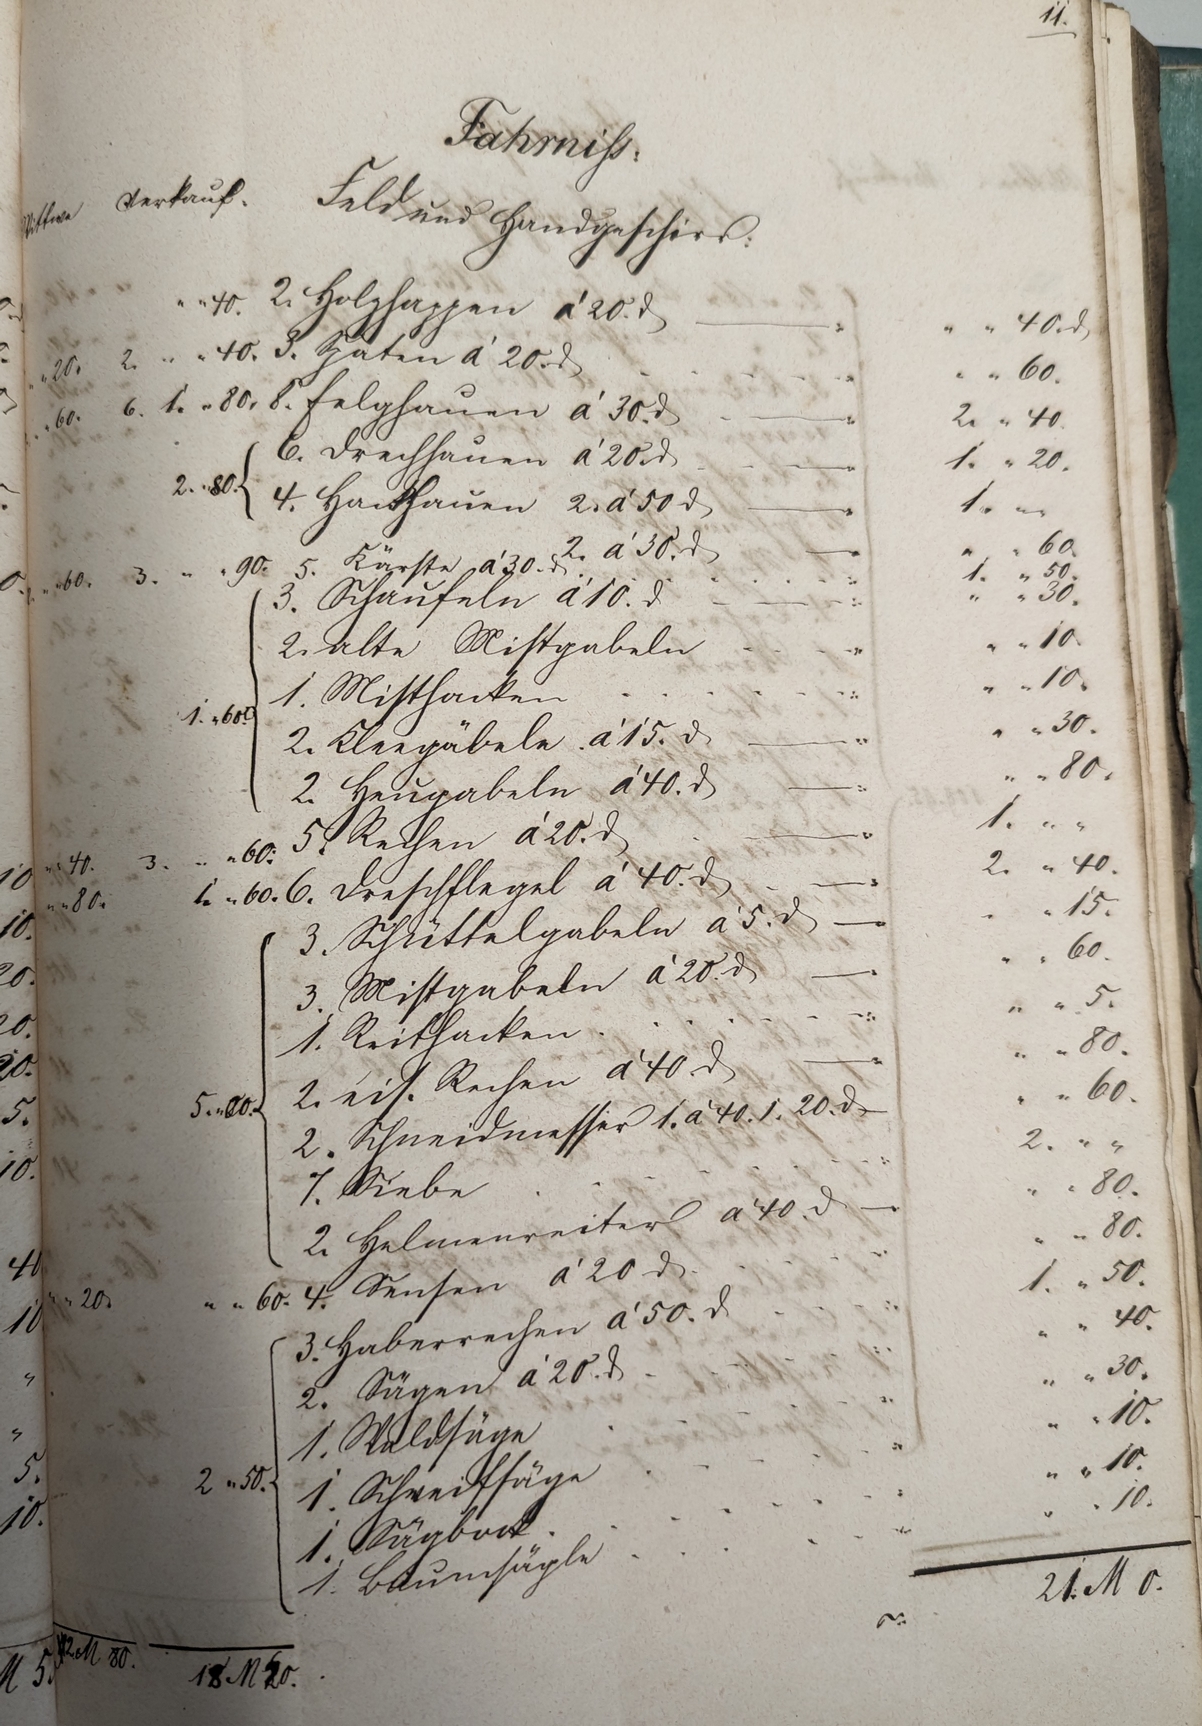 11.
Fahrniß.
Wittwe Verkauf. Feld und Handgeschirr:
" " 40. 2. Holzhappen á 20. d " " 40. d
" " 20. 2. " " 40. 3. Spaten á 20. d " " 60.
" " 60. 6. 1. " 80. 8. Felghauen á 30. d 2. " 40.
6. Drechhauen á 20. d 1. " 20.
2. " 80. 4. Hackhauen 2. á 50 d 1. " "
2. á 30. d " " 60.
" " 60. 3. " " 90. 5. Kärste á 30. d 1. " 50.
3. Schaufeln á 10. d " " 30.
2. alte Mistgabeln " " 10.
1. Misthacken " " 10.
1. " 60. 2. Kleegäbele á 15. d " " 30.
2. Heugabeln á 40. d " " 80.
" " 40. 3. " " 60. 5. Rechen á 20. d 1. " "
" " 80. 1. " 60. 6. Dreschflegel á 40. d 2. " 40.
3. Schüttelgabeln á 5. d " " 15.
3. Mistgabeln á 20. d " " 60.
1. Reithacken " " 5.
2. eis. Rechen á 40. d " " 80.
5. " 00. 2. Schneidmesser 1. á 40. 1. 20. d " " 60.
7. Siebe 2. " "
2. Helmenreiter á 40. d " " 80.
" " 20. " " 60. 4. Sensen á 20 d " " 80.
3. Haberrechen á 50. d 1. " 50.
2. Sägen á 20. d " " 40.
1. Waldsäge " " 30.
2 " 50. 1. Schweifsäge " " 10.
1. Sägbock " " 10.
1. Baumsägle " " 10.
21. M 0.
M 80. 18 M 20.